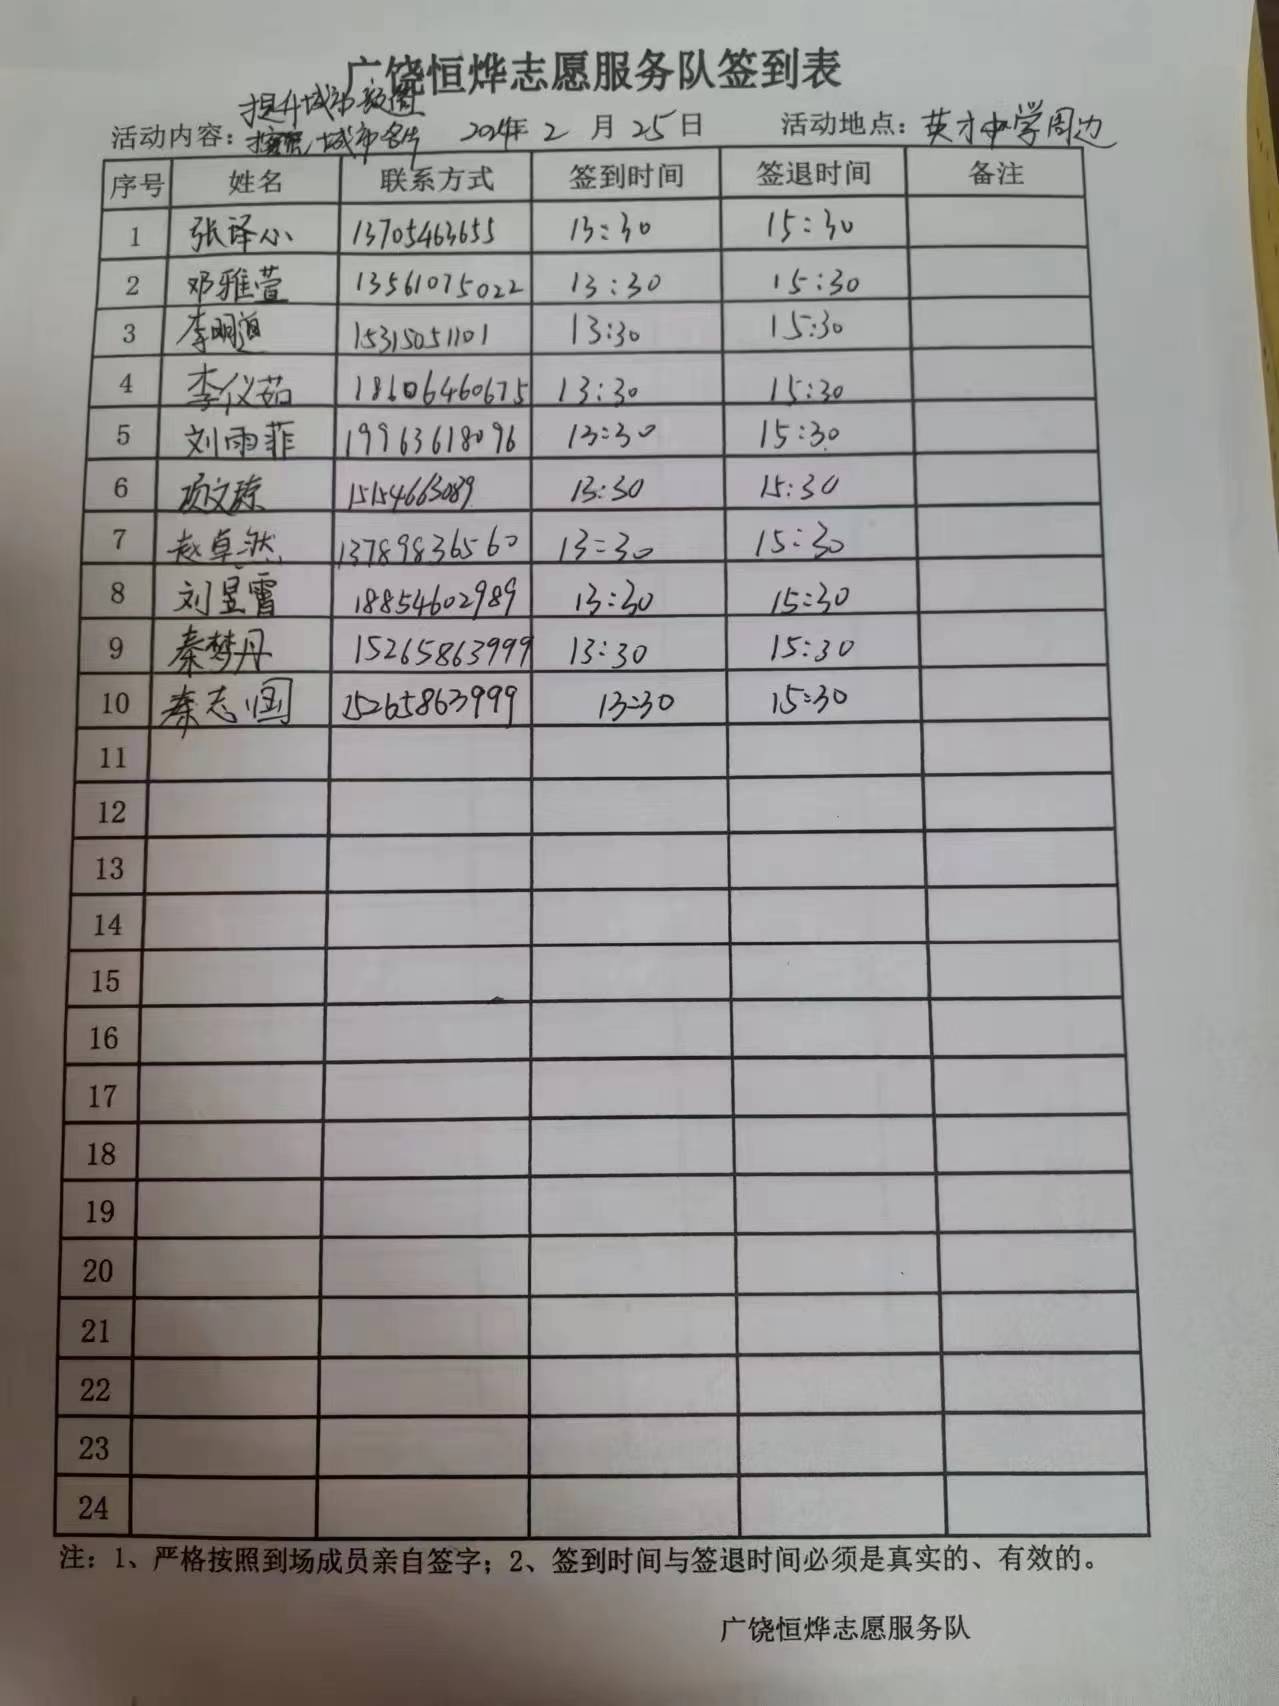 广饶恒烨志愿服务队签到表
提升城市颜值
活动内容：擦亮城市名片 2024年 2 月 25 日 活动地点：英才中学周边
序号 姓名 联系方式 签到时间 签退时间 备注
1 张译心 13705463655 13:30 15:30
2 邓雅萱 13561075022 13:30 15:30
3 李明道 15315051101 13:30 15:30
4 李仪茹 18606460675 13:30 15:30
5 刘雨菲 19963618096 13:30 15:30
6 项文琼 15154663089 13:30 15:30
7 赵卓然 13789836560 13:30 15:30
8 刘昱霄 18854602989 13:30 15:30
9 秦梦丹 15265863999 13:30 15:30
10 秦志国 15265863999 13:30 15:30
11
12
13
14
15
16
17
18
19
20
21
22
23
24
注：1、严格按照到场成员亲自签字；2、签到时间与签退时间必须是真实的、有效的。
广饶恒烨志愿服务队